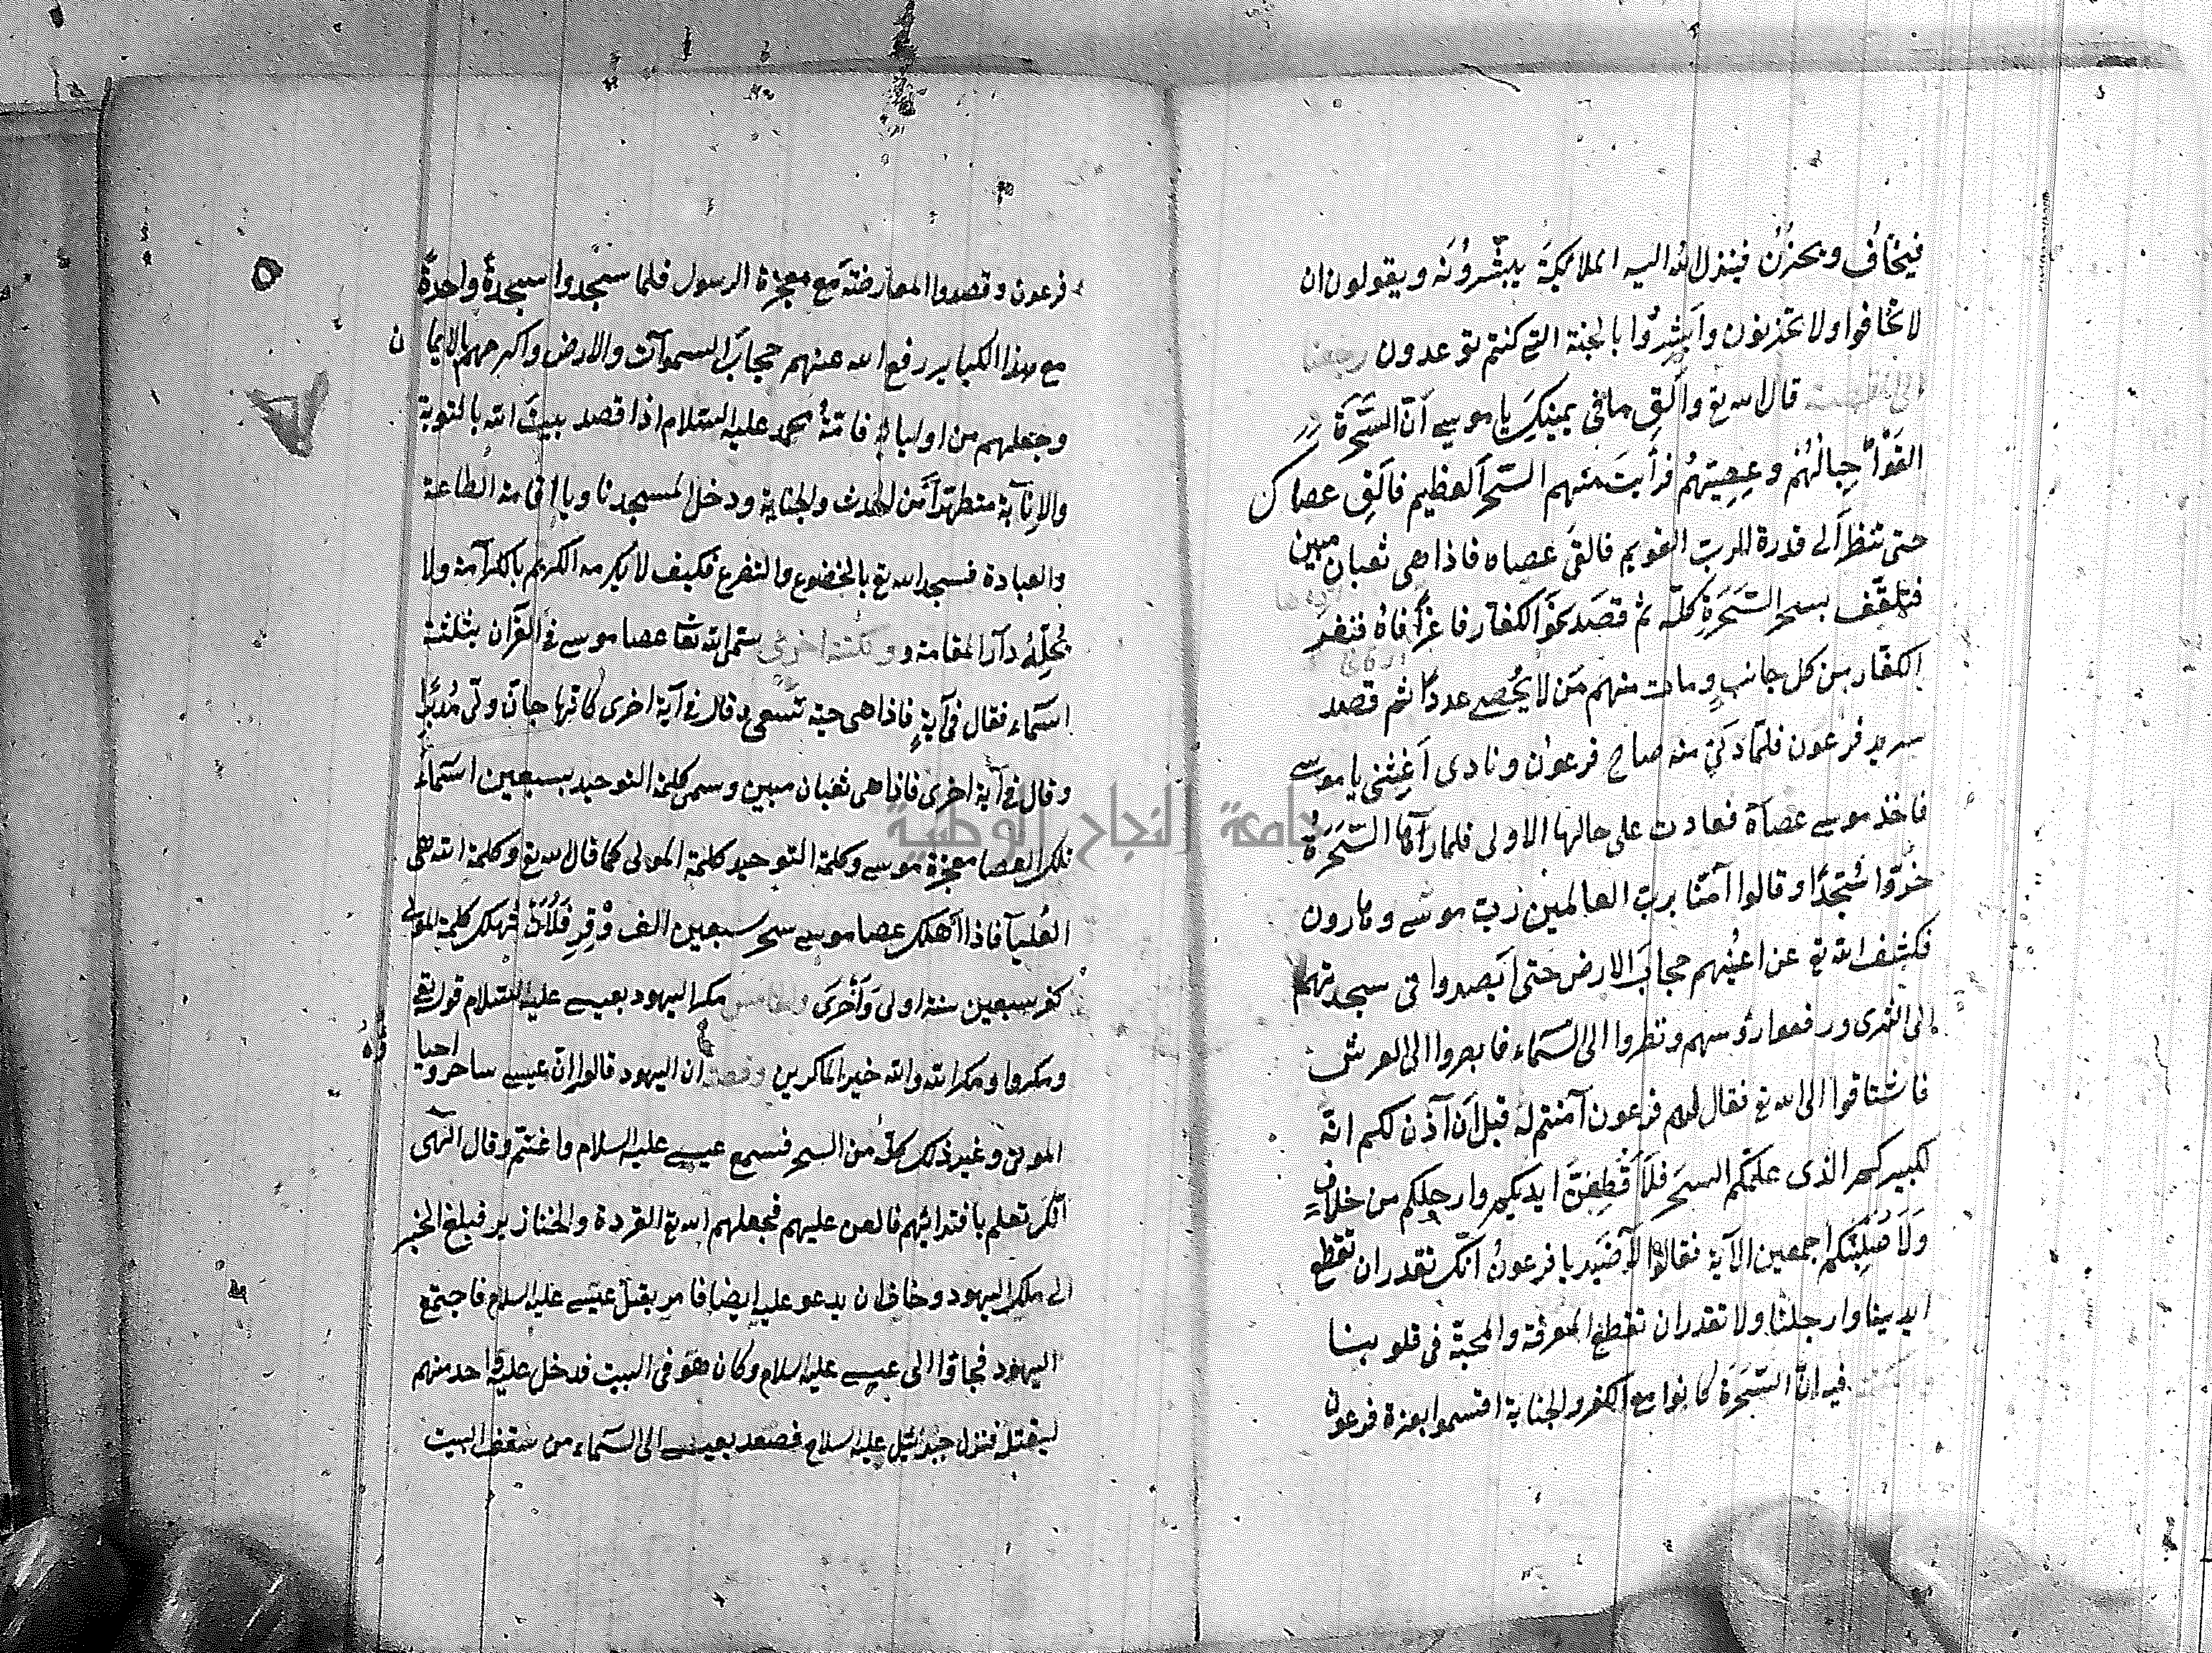 فيخاف ويحزن فينزل الله اليه الملائكة يبشرونه ويقولون ان
لا تخافوا ولا تحزنون وابشروا بالجنة التى كنتم توعدون رجعنا
قال الله تع والق ما فى يمينك يا موسى ان السحرة
القوا حبالهم وعصيتهم فرأيت منهم السحر العظيم فالق عصاك
حتى تنظر الى قدرة الرب القويم فالقى عصاه فاذا هى ثعبان مبين
فتلقف بسحر السحرة كله ثم قصد نحو الكفار فاغرا فاه فنفر
الكفار من كل جانب ومات منهم من لا يحصى عددا ثم قصد
سرير فرعون فلما دنى منه صاح فرعون ونادى اغثنى يا موسى
فاخذ موسى عصاه فعادت على حالها الاولى فلما رآها السحرة
خروا سجدا وقالوا آمنا برب العالمين رب موسى وهارون
فكشف الله تع عن اعينهم حجاب الارض حتى ابصروا فى سجدتهم
الى الثرى ورفعوا رؤسهم ونظروا الى السماء فابصروا الى العرش
فاشتاقوا الى الله تع فقال لهم فرعون آمنتم له قبل ان آذن لكم انه
لكبيركم الذى علمكم السحر فلاقطعن ايديكم وارجلكم من خلاف
ولاصلبنكم اجمعين الآية فقالوا لا ضير يا فرعون انك تقدر ان تقطع
ايدينا وارجلنا ولا تقدر ان تقطع المعرفة والمحبة فى قلوبنا
فيه ان السحرة كانوا مع الكفر والجناية اقسموا بعزة فرعون
فرعون وقصدوا المعارضة مع معجزة الرسول فلما سجدوا سجدة واحدة
مع هذا الكباير رفع الله عنهم حجاب السموات والارض واكرمهم بالايمان
وجعلهم من اوليائه فامة محمد عليه السلام اذا قصد بيت الله بالتوبة
والانابة متطهرا من الحدث والجناية ودخل المسجد ناويا اقامة الطاعة
والعبادة فسجد الله تع بالخضوع والتضرع فكيف لا يكرمه الكريم بالكرامة ولا
يحله دار المقامة و ونكتة اخرى سمى الله تعا عصا موسى فى القرآن بثلثة
اسماء فقال فى آية فاذا هى حية تسعى وقال فى آية اخرى كانها جان ولى مدبرا
وقال فى آية اخرى فاذا هى ثعبان مبين وسمى كلمة التوحيد بسبعين اسماء
فلك العصا معجزة موسى وكلمة التوحيد كلمة المولى كما قال الله تع وكلمة الله هى
العليا فاذا اهلك عصا موسى سحر سبعين الف وقر فلان تهلك كلمة المولى
كفر سبعين سنة اولى واخرى مكر اليهود بعيسى عليه السلام قوله تع
ومكروا ومكر الله والله خير الماكرين وقصته ان اليهود قالوا ان عيسى ساحر واحيا
الموتى وغير ذلك كله من السحر فسمع عيسى عليه السلام واغتم وقال الهى
انك تعلم بافترائهم فالعن عليهم فجعلهم الله تع القردة والخنازير فبلغ الخبر
الى ملك اليهود وخاف ان يدعو عليه ايضا فامر بقتل عيسى عليه السلام فاجتمع
اليهود فجاؤا الى عيسى عليه السلام وكان هو فى البيت فدخل عليه احد منهم
ليقتله فنزل جبرائيل عليه السلام فصعد بعيسى الى السماء من سقف البيت
جامعة النجاح الوطنية